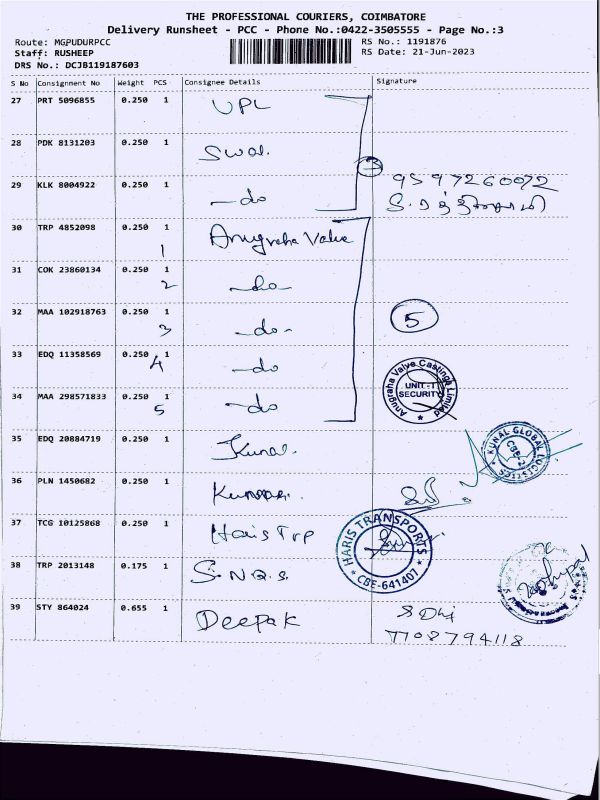 THE PROFESSIONAL COURIERS, COIMBATORE
Delivery Runsheet - PCC - Phone No.:0422-3505555 - Page No.:3
Route: MGPUDURPCC
Staff: RUSHEEP
DRS No.: DCJB119187603
RS No.: 1191876
RS Date: 21-Jun-2023
S No Consignment No Weight PCS Consignee Details Signature
27 PRT 5096855 0.250 1 UPL
28 PDK 8131203 0.250 1 Swal.
3
29 KLK 8004922 0.250 1 -do 9597260072
30 TRP 4852098 0.250 1 Anugraha Valve
1
31 COK 23860134 0.250 1 -do-
2
32 MAA 102918763 0.250 1 -do- 5
3
33 EDQ 11358569 0.250 1 -do
4
34 MAA 298571833 0.250 1 -do
5
Anugraha Valve Castings Limited
UNIT - I
SECURITY
35 EDQ 20884719 0.250 1 Kunal.
KUNAL GLOBAL LOGISTICS
CBE-2
36 PLN 1450682 0.250 1
37 TCG 10125868 0.250 1 Haris Trp
HARIS TRANSPORTS
CBE-641407
38 TRP 2013148 0.175 1 S.N.Q.S.
39 STY 864024 0.655 1 Deepak
7708794118